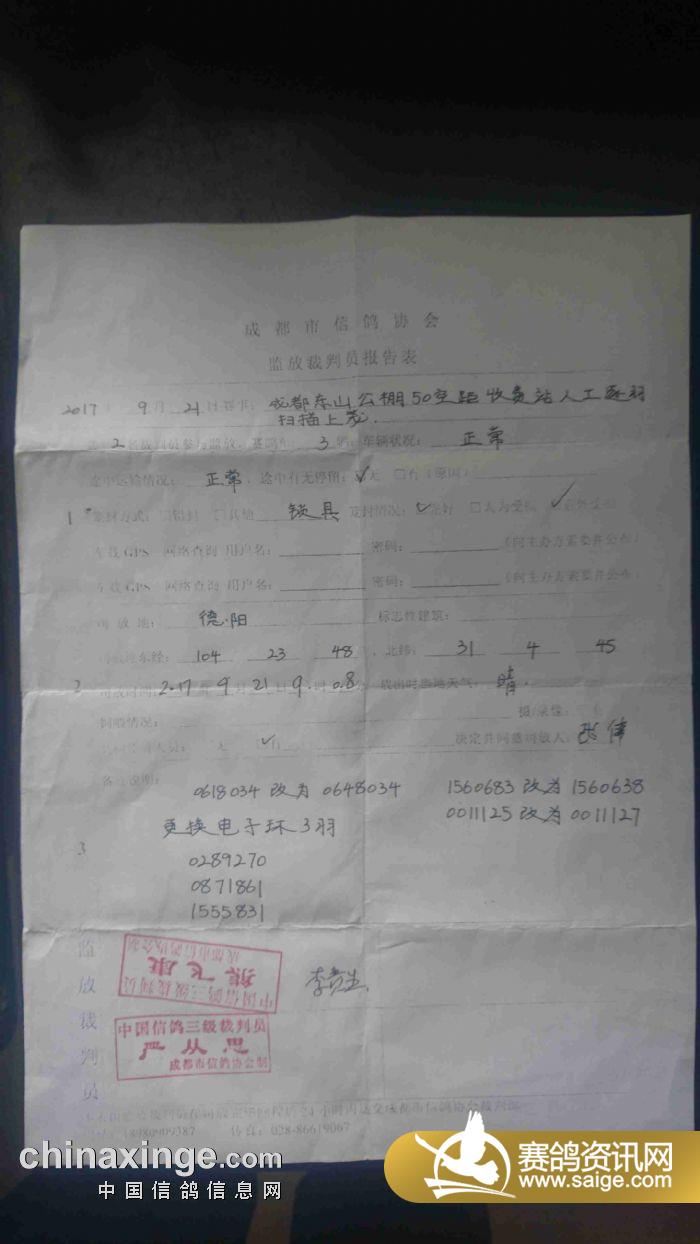 成都市信鸽协会
监放裁判员报告表
2017 9月21日 成都东山公棚50空距收费站人工逐羽
扫描上笼.
2名裁判员参与监放, 3辆; 车辆状况: 正常
途中运输情况: 正常, 途中有无停留: ✓无 □有(原因)
1 笼封方式: □铅封 □其他 锁具 笼封情况: ✓完好 □人为受损 ✓意外受损
车载GPS 网络查询 用户名: 密码: (向主办方索要并公布)
车载GPS 网络查询 用户名: 密码: (向主办方索要并公布)
司放地: 德阳 标志性建筑:
东经: 104 23 48, 北纬: 31 4 45
2 司放时间: 2017年9月21日9时08 放出时当地天气: 晴.
饲喂情况: 摄/录像:
无 ✓有 决定并同意司放人: 张伟
备注说明:
0618034 改为 0648034 1560683 改为 1560638
0011125 改为 0011127
更换电子环3羽
3
0289270
0871861
1555831
监放裁判员
中国信鸽三级裁判员
熊飞康
成都市信鸽协会制
中国信鸽三级裁判员
严从思
成都市信鸽协会制
18980909387 传真: 028-86619067
chinaxinge.com
中国信鸽信息网
赛鸽资讯网
www.saige.com